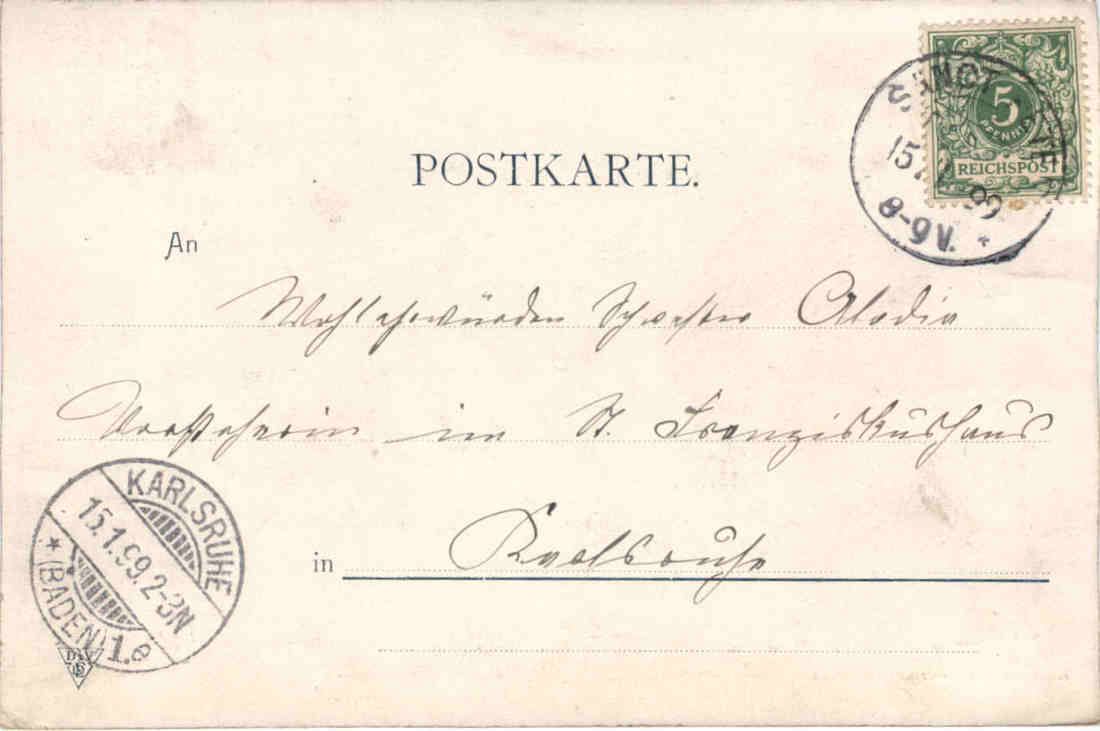 POSTKARTE.
5
PFENNIG
REICHSPOST
SANCT PETER
15 99
8-9V.
An
Wohlehrwürden Schwester Alodia
Vorsteherin im St. Franziskushaus
in Karlsruhe
KARLSRUHE
15.1.99.2-3N
(BADEN) 1.e